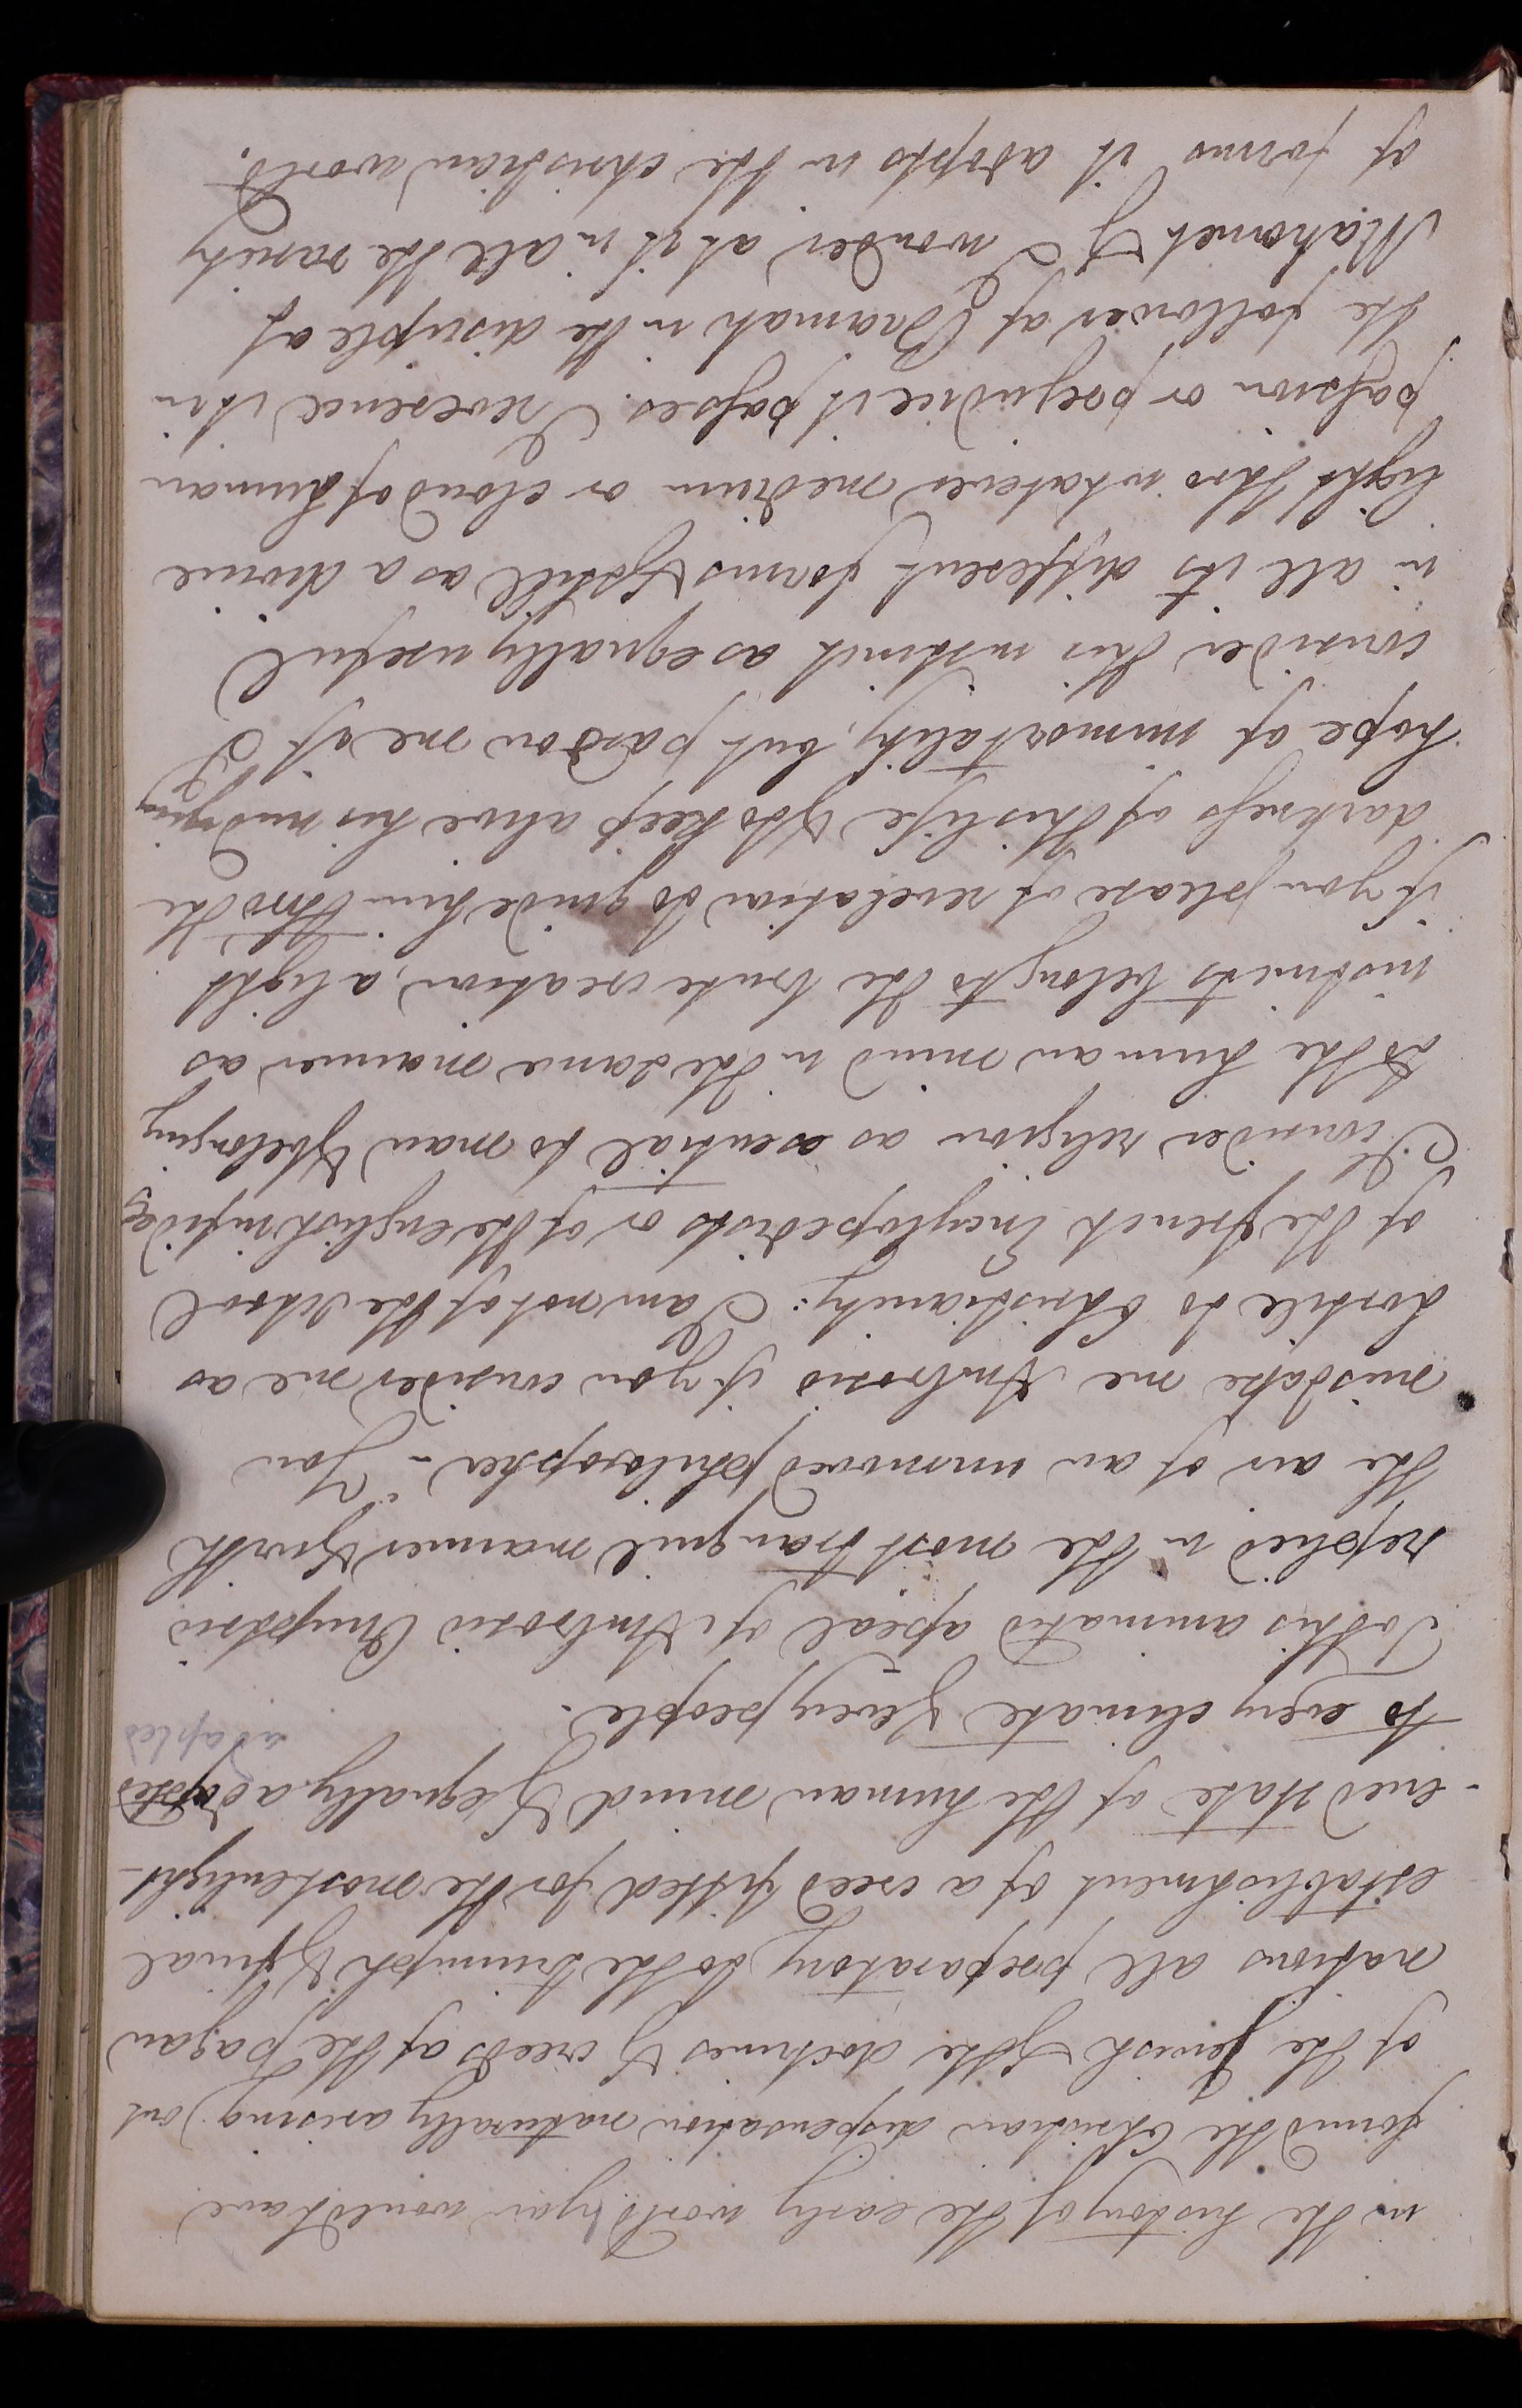 in the history of the early world you would have
found the Christian dispensation naturally arising out
of the Jewish & the doctrines & creeds of the pagan
nations all preparatory to the triumph & final
establishment of a creed fitted for the most enlight-
-ened state of the human mind & equally adapted
adapted
to every climate & every people.
To this animated apeal of Ambrosio Onuphrio
replied in the most tranquil manner & with
the air of an unmoved philosopher - "You
mistake me Ambrosio if you consider me as
hostile to Christianity: I am not of the school
of the french Encyclopedists or of the english infidels
I consider religion as esential to man & belonging
to the human mind in the same manner as
instincts belong to the brute creation, a light
if you please of revelation to guide him thro the
darkness of this life & to keep alive his undying
hope of immortality; but pardon me if I
consider this instinct as equally useful
in all its different forms & still as a divine
light thro whatever medium or cloud of human
passion or prejudice it passes. I reverence it in
the follower of Bramah in the disciple of
Mahomet & I wonder at it in all the variety
of forms it adopts in the christian world.